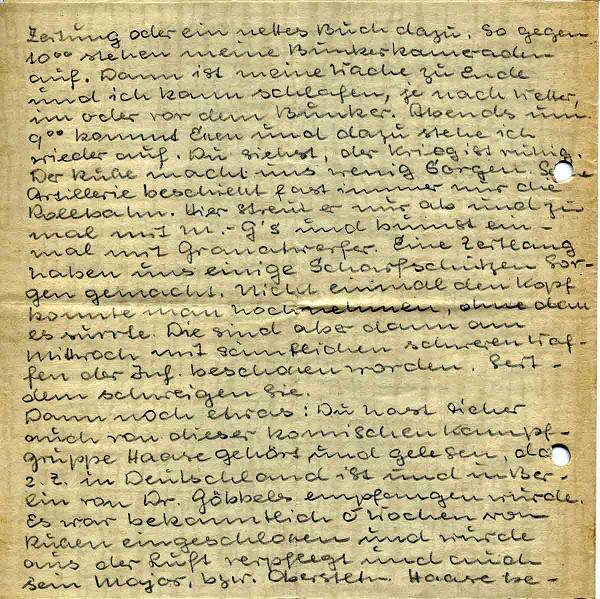 Zeitung oder ein nettes Buch dazu. So gegen
10°° stehen meine Bunkerkameraden
auf. Dann ist meine Wache zu Ende
und ich kann schlafen, je nach Wetter,
im oder vor dem Bunker. Abends um
9°° kommt Essen und dazu stehe ich
wieder auf. Du siehst, der Krieg ist ruhig.
Der Ruße macht uns wenig Sorgen.
Artillerie beschießt fast immer nur die
Rollbahn. Hier streut er nur ab und zu
mal mit M.-G's und bumst ein-
mal mit Granatwerfer. Eine Zeitlang
haben uns einige Scharfschützen Sor-
gen gemacht. Nicht einmal den Kopf
konnte man hochnehmen, ohne dass
es surrte. Die sind aber dann am
Mittwoch mit sämtlichen schweren Waf-
fen der Inf. beschossen worden. Seit-
dem schweigen sie.
Dann noch etwas: Du hast sicher
auch von dieser komischen Kampf-
gruppe Haase gehört und gelesen, da
z. Z. in Deutschland ist und in Ber-
lin von Dr. Göbbels empfangen wurde.
Es war bekanntlich 5 Wochen von
Rußen eingeschlossen und wurde
aus der Luft verpflegt und auch
sein Major, bzw. Oberstltn. Haase be-